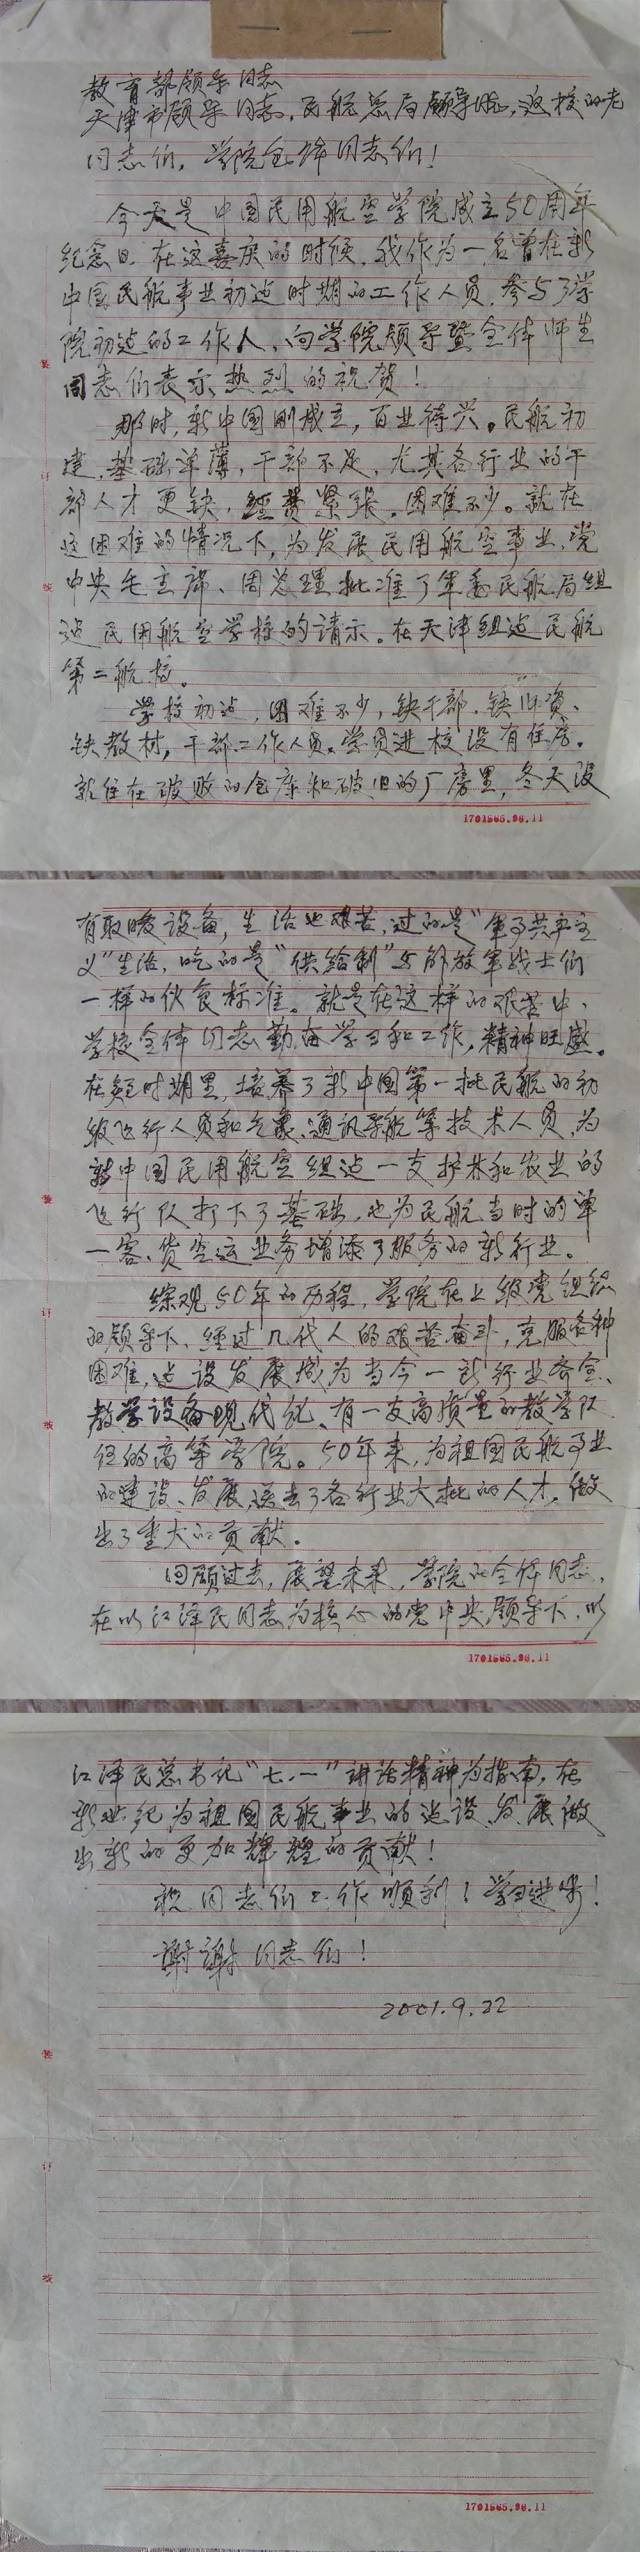 教育部领导同志
天津市领导同志，民航总局领导同志，返校的老
同志们，学院全体同志们！
今天是中国民用航空学院成立50周年
纪念日，在这喜庆的时候，我作为一名曾在新
中国民航事业初建时期的工作人员，参与了学
院初建的工作人，向学院领导暨全体师生
同志们表示热烈的祝贺！
那时，新中国刚成立，百业待兴。民航初
建，基础单薄，干部不足，尤其各行业的干
部人才更缺，经费紧张，困难不少。就在
这困难的情况下，为发展民用航空事业，党
中央毛主席、周总理批准了军委民航局组
建民用航空学校的请示。在天津组建民航
第二航校。
学校初建，困难不少，缺干部，缺师资、
缺教材，干部工作人员。学员进校没有住房，
就住在破败的仓库和破旧的厂房里，冬天没
1701565.98.11
有取暖设备，生活也艰苦，过的是“军事共产主
义”生活，吃的是“供给制”与解放军战士们
一样的伙食标准。就是在这样的艰苦中，
学校全体同志勤奋学习和工作，精神旺盛。
在短时期里，培养了新中国第一批民航的初
级飞行人员和气象、通讯导航等技术人员，为
新中国民用航空组建一支护林和农业的
飞行队打下了基础，也为民航当时的单
一客、货空运业务增添了服务的新行业。
综观50年的历程，学院在上级党组织
的领导下，经过几代人的艰苦奋斗，克服各种
困难，建设发展成为当今一所行业齐全、
教学设备现代化、有一支高质量的教学队
伍的高等学院。50年来，为祖国民航事业
的建设、发展，送去了各行业大批的人才，做
出了重大的贡献。
回顾过去，展望未来，学院的全体同志，
在以江泽民同志为核心的党中央领导下，以
1701565.98.11
江泽民总书记“七.一”讲话精神为指南，在
新世纪为祖国民航事业的建设、发展做
出新的更加辉煌的贡献！
祝同志们工作顺利！学习进步！
谢谢同志们！
2001.9.22
装
订
线
1701565.98.11